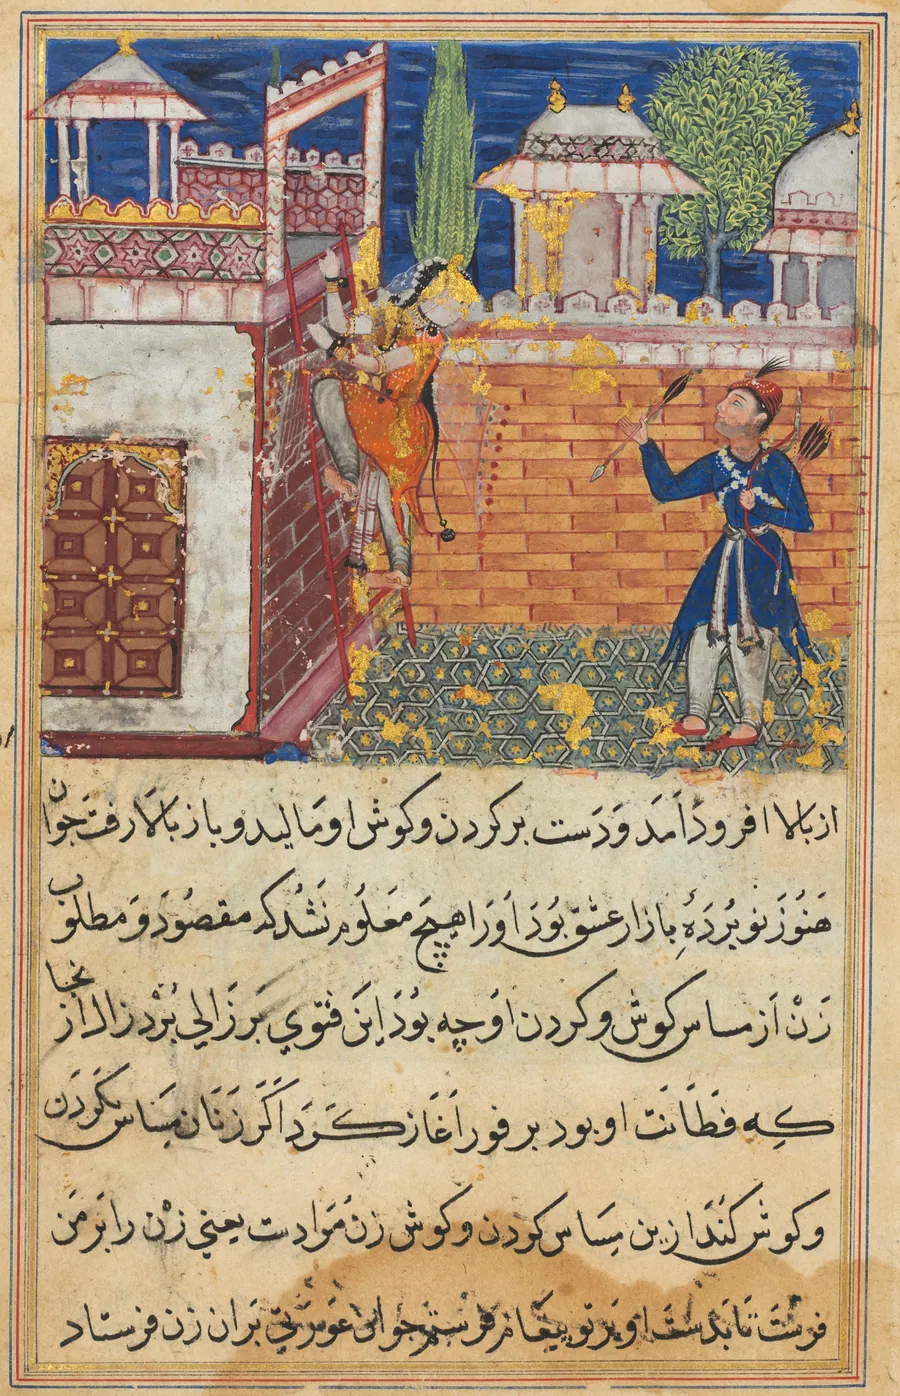 از بالا فرود آمد و دست بر کردن و کوش او مالید و باز بالا رفت جوان
هنوز نو بردهٔ بازار عشق بود او را هیچ معلوم نشد که مقصود و مطلوب
زن از مساس کوش و کردن او چه بود این فتوی بر زالی برد زال از آنجا
که فطانت او بود بر فور آغاز کرد اکر زنان مساس کردن
و کوش کنند ازین مساس کردن و کوش زن مراد است یعنی زن را بر من
فرست تا بدست او بر تو پیغام فرستم جوان عورتی بر آن زن فرستاد